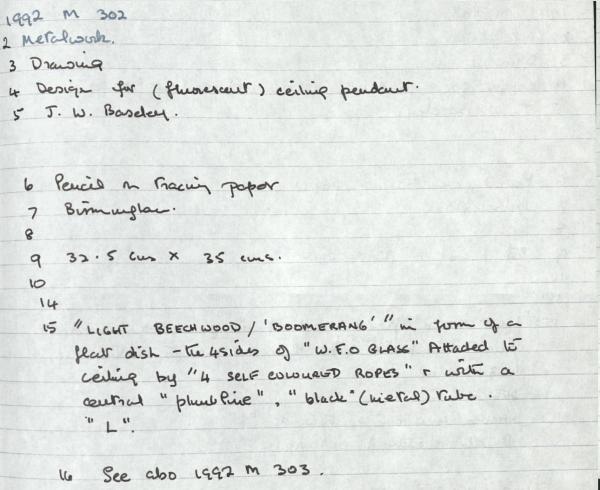 1992 M 302
2 Metalwork.
3 Drawing
4 Design for (fluorescent) ceiling pendant.
5 J. W. Baseley.
6 Pencil on tracing paper
7 Birmingham.
8
9 32.5 cms x 35 cms.
10
14
15 "LIGHT BEECHWOOD / 'BOOMERANG'" in form of a
flat dish - the 4 sides of "W.F.O GLASS" Attached to
ceiling by "4 SELF COLOURED ROPES" + with a
central "plumb line", "black" (metal) tube.
"L".
16 See also 1992 M 303.